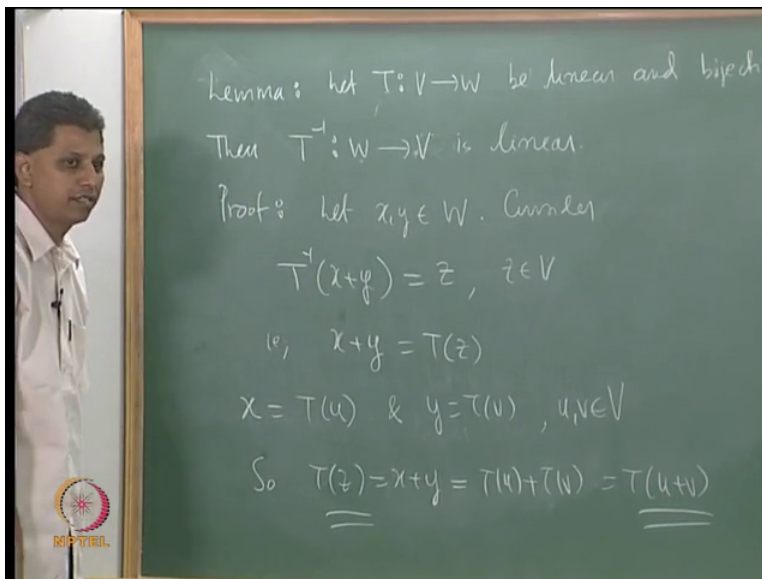 Lemma: Let T: V → W be linear and bijech
Then T⁻¹: W → V is linear.
Proof: Let x, y ∈ W. Consider
T⁻¹(x+y) = z, z ∈ V
ie, x+y = T(z)
x = T(u) & y = T(v), u, v ∈ V
So T(z) = x+y = T(u)+T(v) = T(u+v)
NPTEL